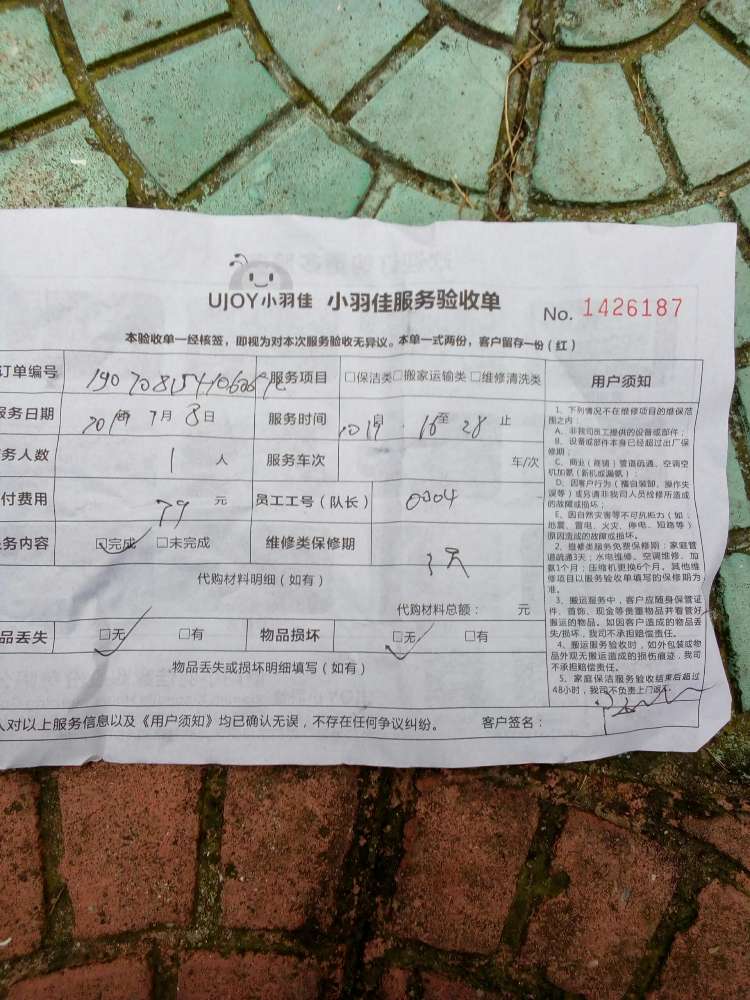 UJOY小羽佳 小羽佳服务验收单 No. 1426187
本验收单一经核签，即视为对本次服务验收无异议。本单一式两份，客户留存一份（红）
订单编号 服务项目 □保洁类□搬家运输类□维修清洗类 用户须知
服务日期 7月8日 服务时间 至 28 止
务人数 1 人 服务车次 车/次
付费用 79 元 员工工号（队长） 0004
务内容 ☑完成 □未完成 维修类保修期 3天
代购材料明细（如有）
代购材料总额： 元
品丢失 □无 □有 物品损坏 □无 □有
物品丢失或损坏明细填写（如有）
人对以上服务信息以及《用户须知》均已确认无误，不存在任何争议纠纷。 客户签名：
1、下列情况不在维修项目的维保范
围之内：
A、非我司员工提供的设备或部件；
B、设备或部件本身已经超过出厂保
修期；
C、商业（商铺）管道疏通、空调空
机加氨（新机或漏氨）；
D、因客户行为（擅自装卸、操作失
误等）或另请非我司人员检修所造成
的故障或损坏；
E、因自然灾害等不可抗拒力（如：
地震、雷电、火灾、停电、短路等）
原因造成的故障或损坏。
2、维修类服务免费保修期：家庭管
道疏通3天；水电维修、空调维修、加
氨1个月；压缩机更换6个月。其他维
修项目以服务验收单填写的保修期为
准。
3、搬运服务中，客户应随身保管证
件、首饰、现金等贵重物品并看管好
搬运的物品。如因客户造成的物品丢
失/损坏，我司不承担赔偿责任。
4、搬运服务验收时，如外包装或物
品外观无搬运造成的损伤痕迹，我司
不承担赔偿责任。
5、家庭保洁服务验收结束后超过
48小时，我司不负责上门返工。